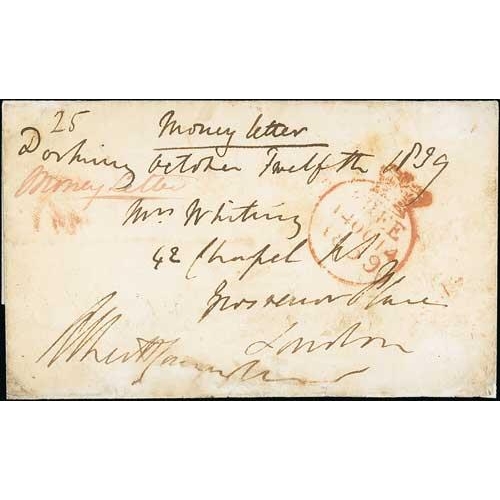 25
Money letter
Dorking October Twelfth 1839
Money Letter
Mrs Whiting
42 Chapel St
Grosvenor Place
London
FREE
1839